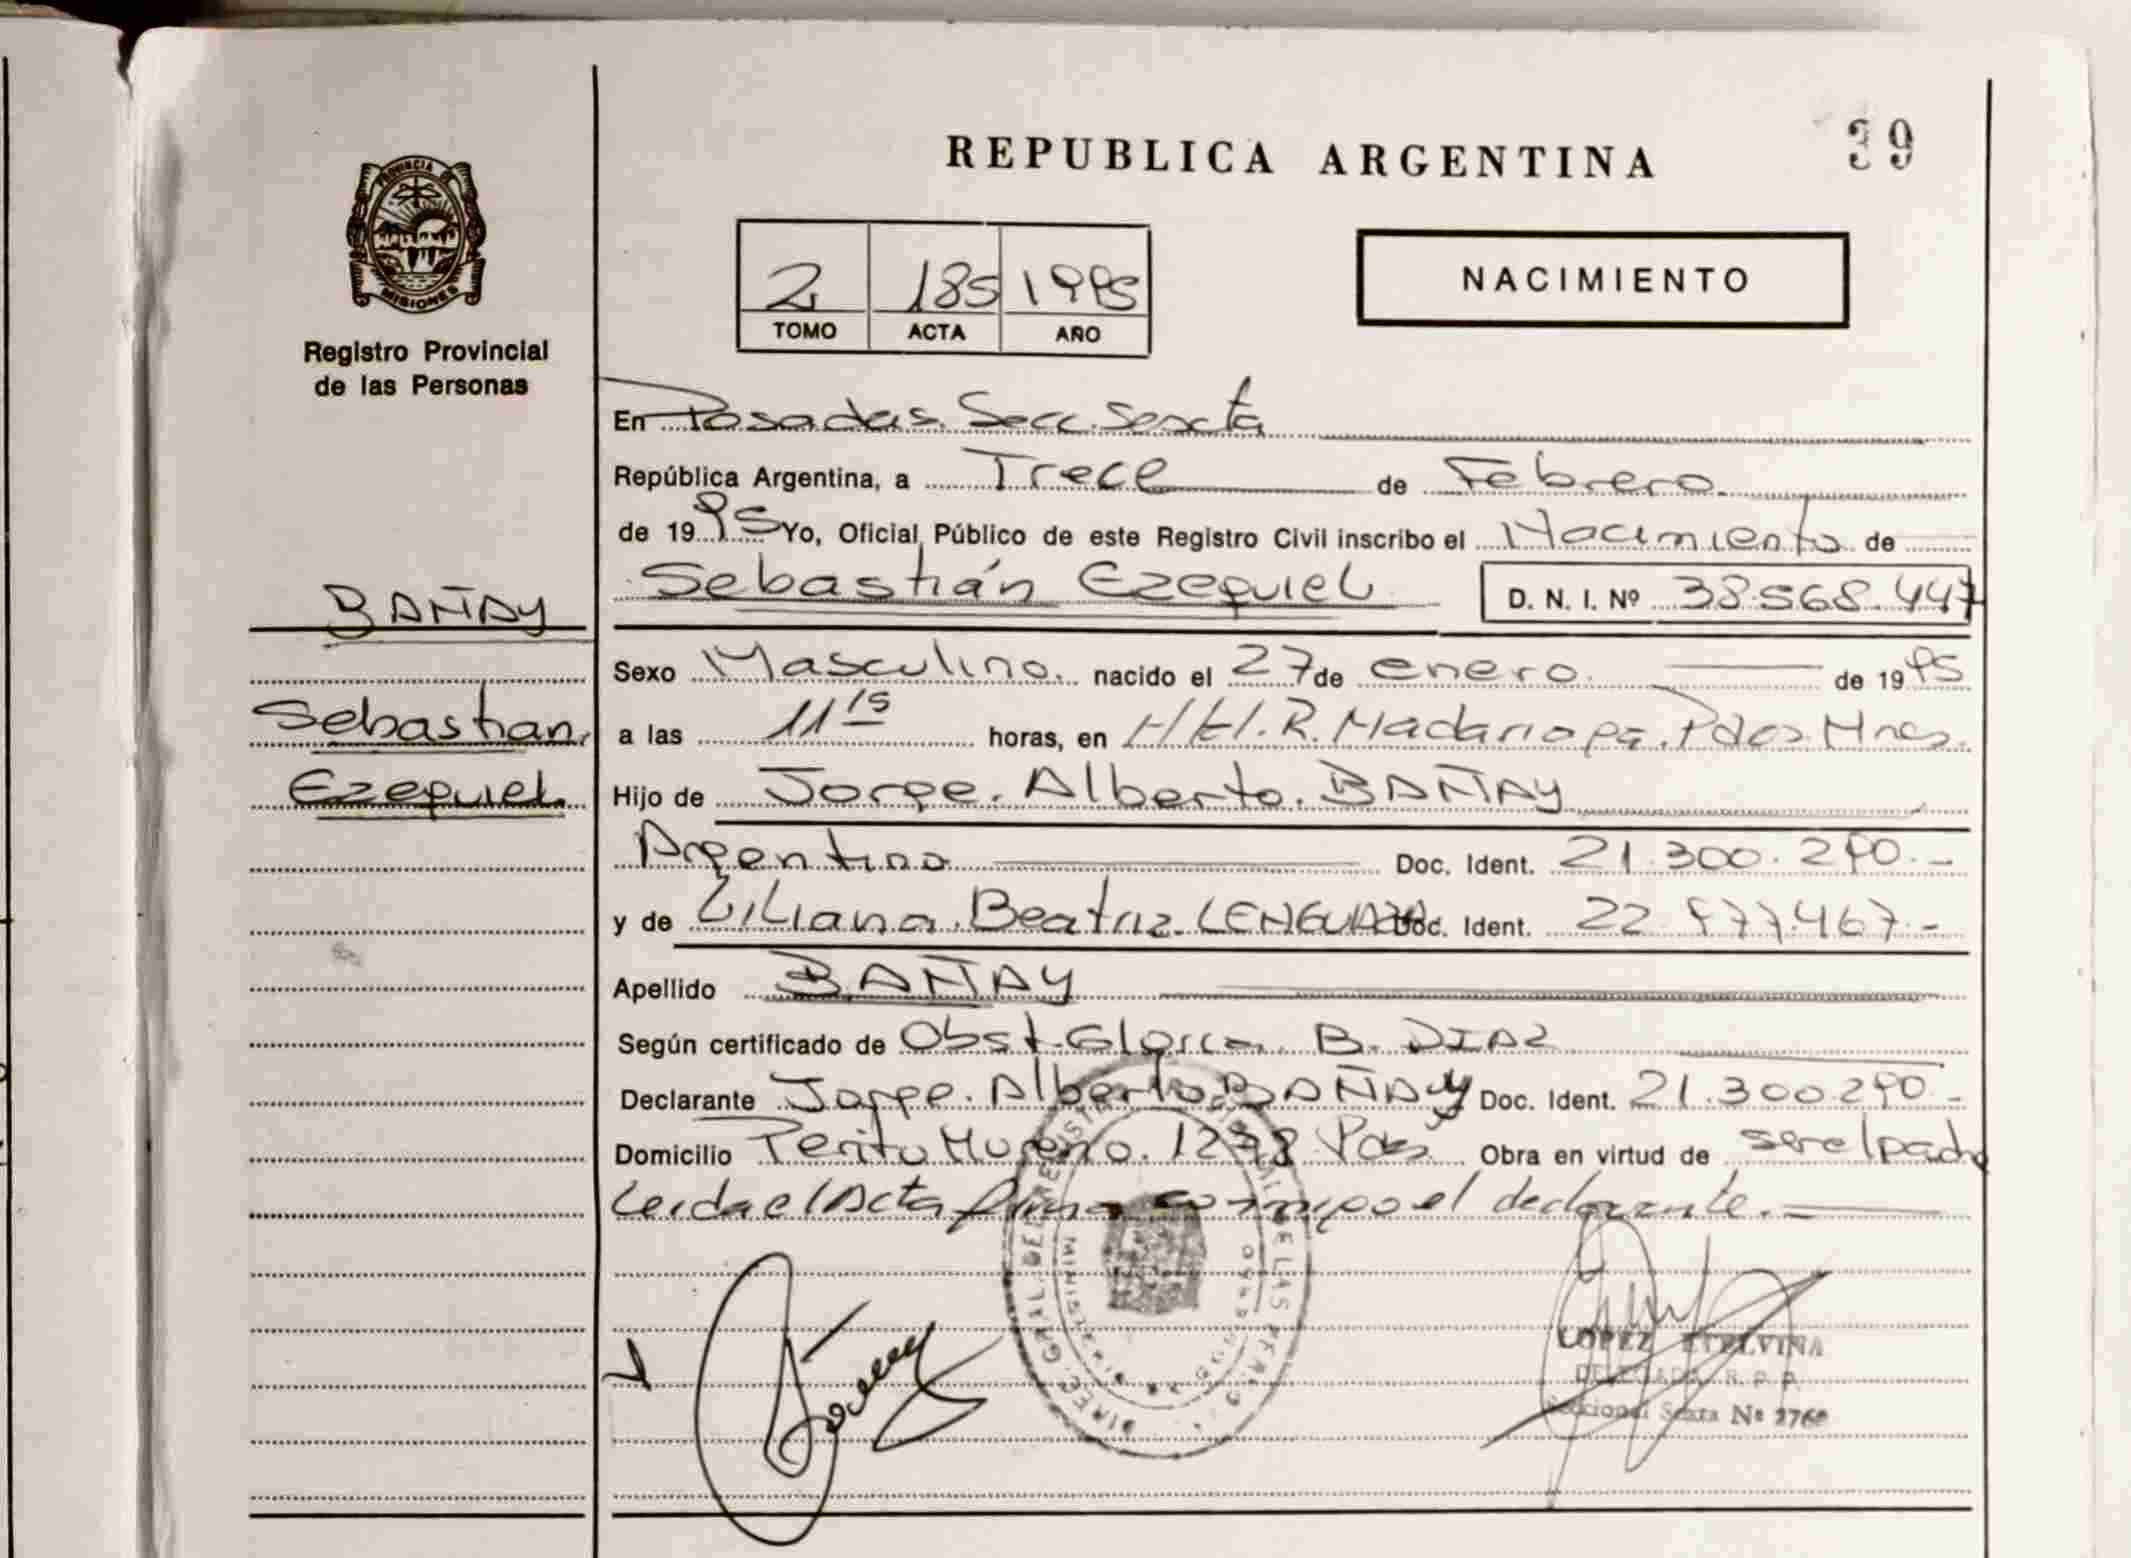 REPUBLICA ARGENTINA
39
PROVINCIA DE
MISIONES
Registro Provincial
de las Personas
2 185 1995
TOMO ACTA AÑO
NACIMIENTO
En Posadas. Secc. Sexcta
República Argentina, a Trece de Febrero.
de 1995 Yo, Oficial Público de este Registro Civil inscribo el Nacimiento de
Sebastián Ezequiel D. N. I. Nº 38.568.447
BAÑAY
Sebastian
Ezequiel
Sexo Masculino. nacido el 27 de enero. de 1995
a las 11 15 horas, en H/tl. R. Madariaga. Pdas Mnes.
Hijo de Jorge. Alberto. BAÑAY
Argentino Doc. Ident. 21.300.290.-
y de Liliana. Beatriz. LENGUAZA Doc. Ident. 22.977.467.-
Apellido BAÑAY
Según certificado de Obst. Gloria B. DIAZ
Declarante Jorge. Alberto. BAÑAY Doc. Ident. 21.300290.-
Domicilio Perito Moreno. 1278 Pdas Obra en virtud de ser el padre
Leida el Acta firma conmigo el declarante.
LOPEZ ETELVINA
DELEGADA R. P. P.
Seccional Sexta Nº 2768